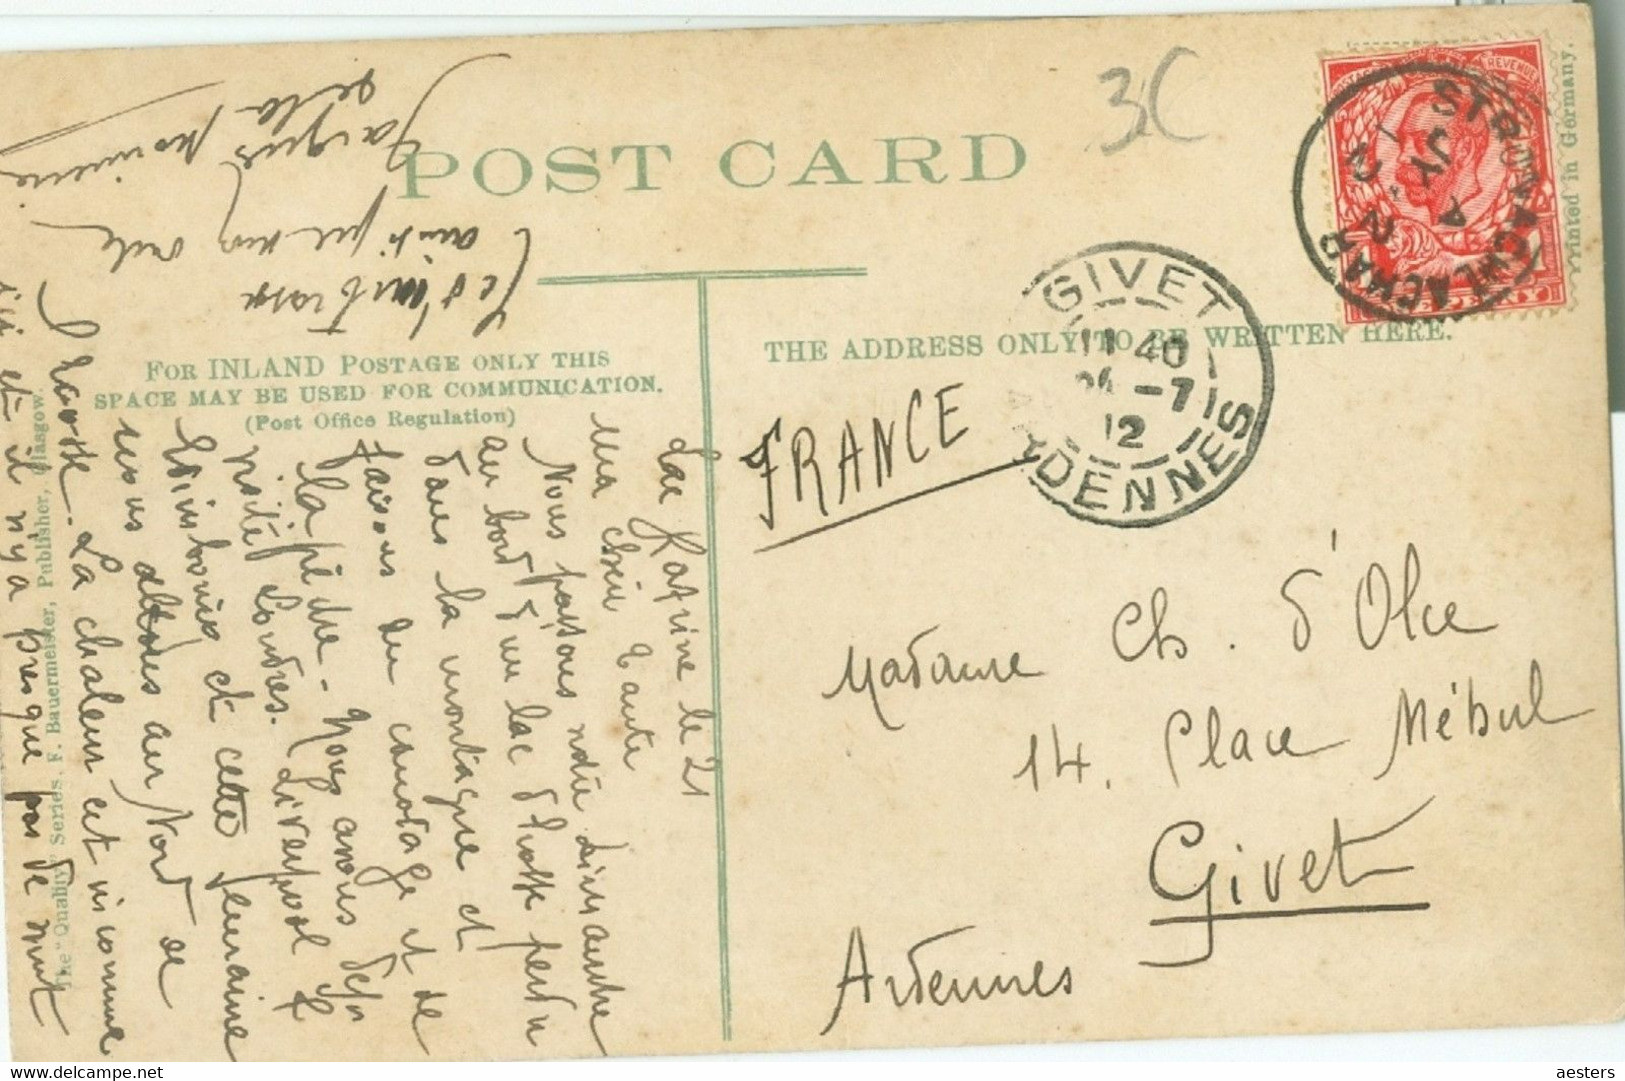 POST CARD
3C
FOR INLAND POSTAGE ONLY THIS
SPACE MAY BE USED FOR COMMUNICATION.
(Post Office Regulation)
THE ADDRESS ONLY TO BE WRITTEN HERE.
Printed in Germany.
The "Quality" Series. F. Bauermeister, Publisher, Glasgow.
POSTAGE REVENUE
STRONACHLACHAR
A
JY
GIVET
11 40
-7
12
ARDENNES
FRANCE
Madame Ch. d'Olce
14. Place Méhul
Givet
Ardennes
Lac Katrine le 21
Ma chère tante
Nous passons notre dimanche
au bord d'un lac d'Ecosse perdu
dans la montagne et
faisons du canotage et de
la pêche. Nous avons déjà
visité Londres. Liverpool &
Edimbourg et cette semaine
nous allons au Nord de
l'Ecosse. La chaleur est inconnue
ici et il n'y a presque pas de nuit
Je t'embrasse
ainsi que mon oncle
Jacques